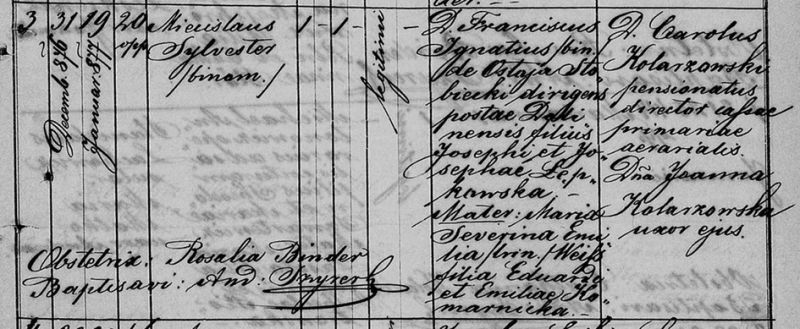 3 31 19 20 Miecislaus
opp Sylvester
/binom./
Decemb. 876
Januar. 877
1 - 1 -
legitimi
D. Franciscus
Ignatius /bin/
de Ostoja Sto
biecki dirigens
postae Doli
nensis filius
Josephi et Jo
sephae Łep
kowska. -
Mater: Maria
Severina Emi
lia /trin./ Weiß
filia Eduardi
et Emiliae Ko
marnicka. -
D. Carolus
Kolarzowski
pensionatus
director cassae
primariae
aerarialis.
Dña Joanna
Kolarzowska
uxor ejus.
Obstetrix: Rosalia Binder
Baptisavi: And: